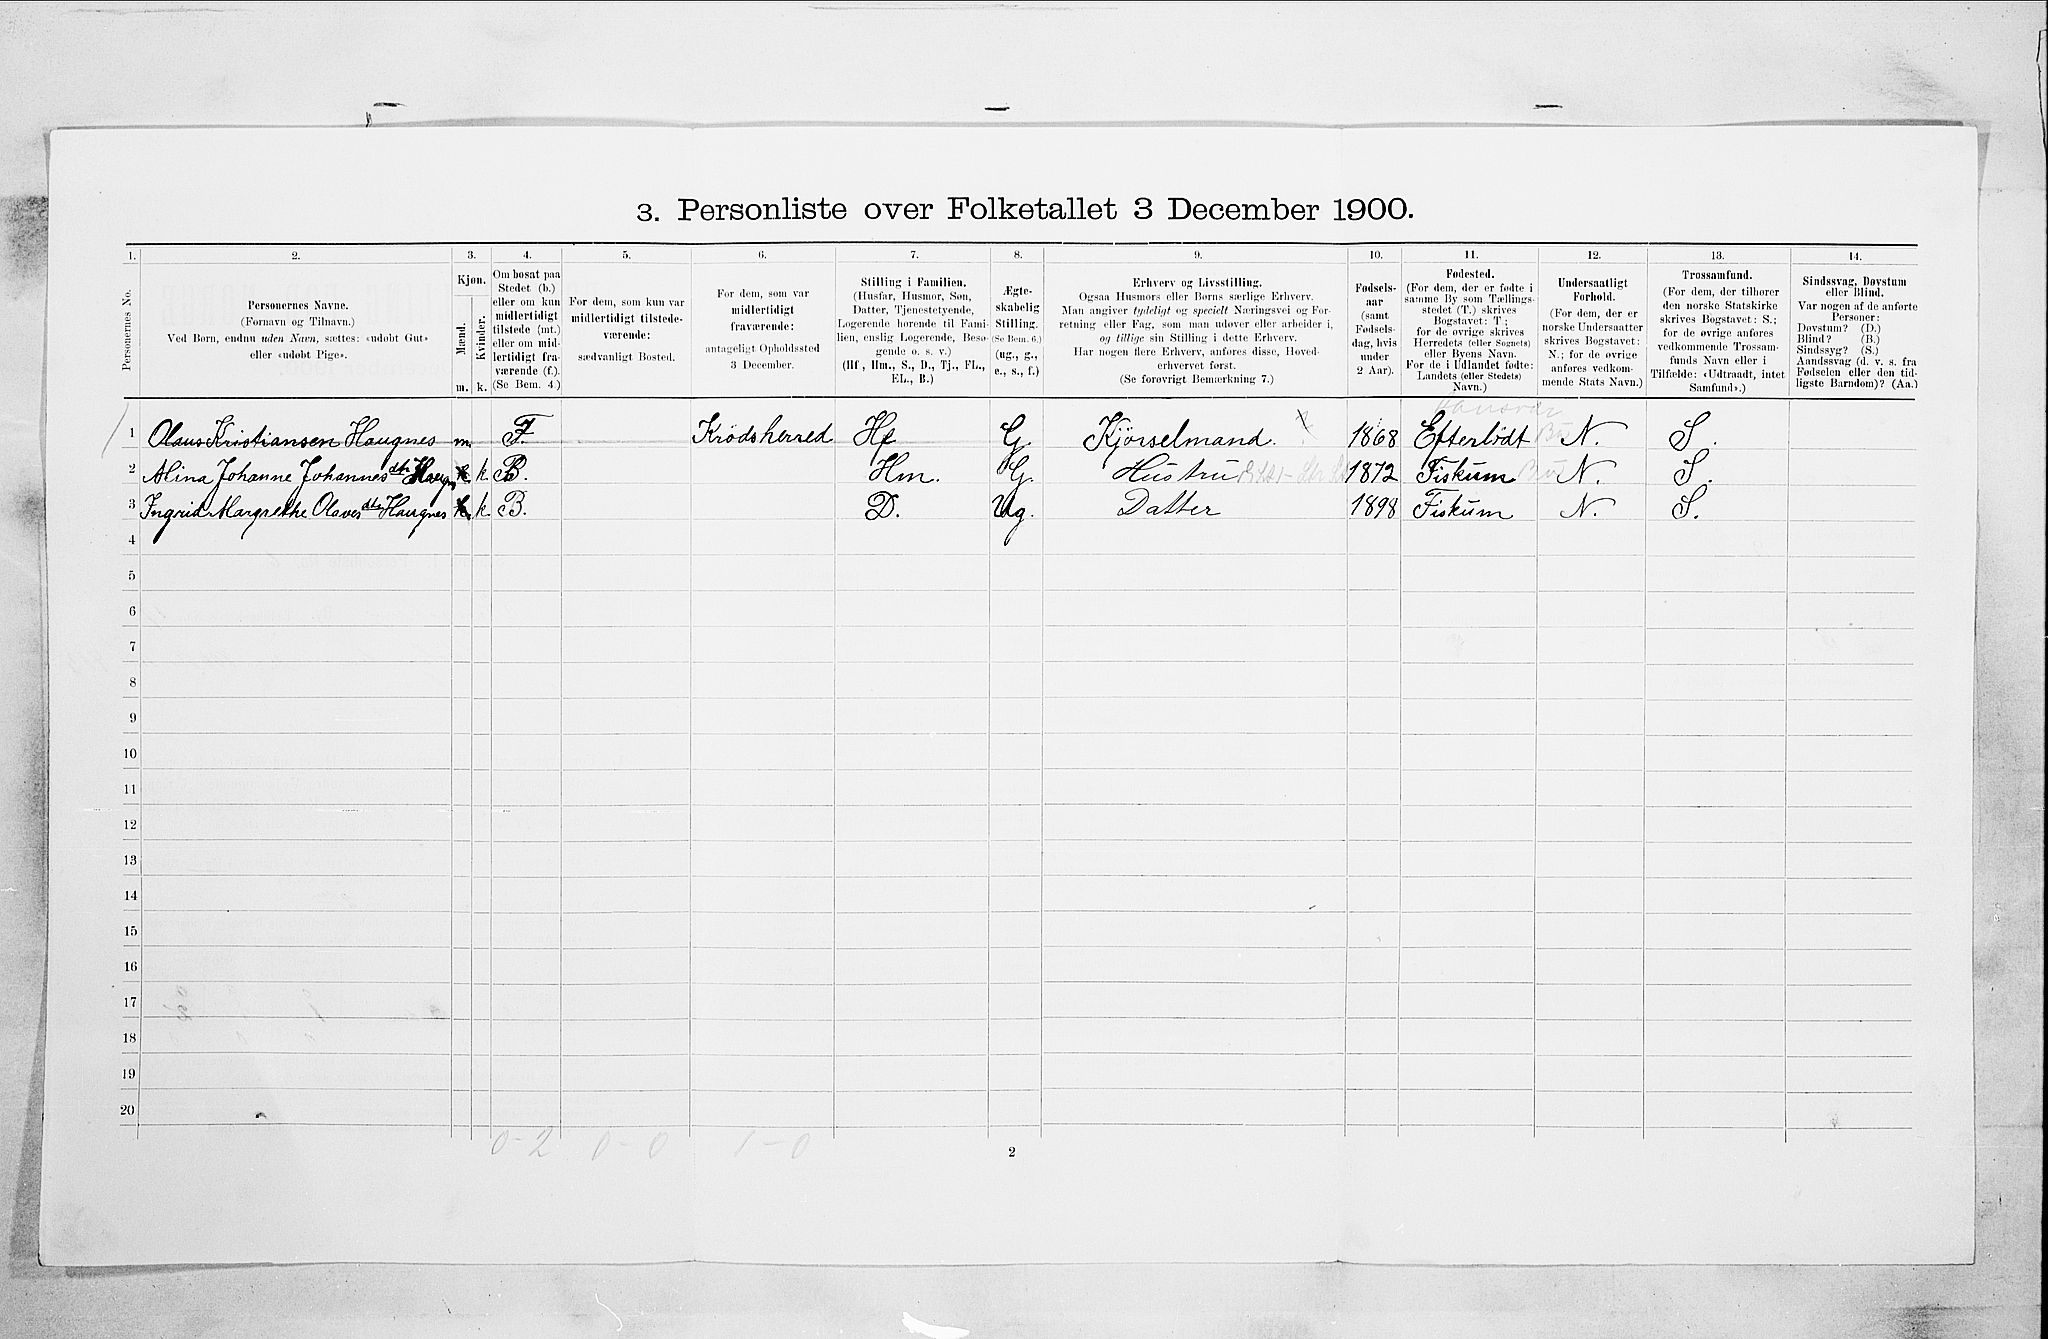 3. Personliste over Folketallet 3 December 1900.
1. 2. 3. 4. 5. 6. 7. 8. 9. 10. 11. 12. 13. 14.
Personernes No.
Personernes Navne.
(Fornavn og Tilnavn.)
Ved Børn, endnu uden Navn, sættes: «udøbt Gut»
eller «udøbt Pige».
Kjøn.
Mænd. Kvinder.
m. k.
Om bosat paa
Stedet (b.)
eller om kun
midlertidigt
tilstede (mt.)
eller om mid-
lertidigt fra-
værende (f.)
(Se Bem. 4.)
For dem, som kun var
midlertidigt tilstede-
værende:
sædvanligt Bosted.
For dem, som var
midlertidigt
fraværende:
antageligt Opholdssted
3 December.
Stilling i Familien.
(Husfar, Husmor, Søn,
Datter, Tjenestetyende,
Logerende hørende til Fami-
lien, enslig Logerende, Besø-
gende o. s. v.)
(Hf, Hm., S., D., Tj., FL.,
EL., B.)
Ægte-
skabelig
Stilling.
(Se Bem. 6.)
(ug., g.,
e., s., f.)
Erhverv og Livsstilling.
Ogsaa Husmors eller Børns særlige Erhverv.
Man angiver tydeligt og specielt Næringsvei og For-
retning eller Fag, som man udøver eller arbeider i,
og tillige sin Stilling i dette Erhverv.
Har nogen flere Erhverv, anføres disse, Hoved-
erhvervet først.
(Se forøvrigt Bemærkning 7.)
Fødsels-
aar
(samt
Fødsels-
dag, hvis
under
2 Aar).
Fødested.
(For dem, der er fødte i
samme By som Tællings-
stedet (T.) skrives
Bogstavet: T;
for de øvrige skrives
Herredets (eller Sognets)
eller Byens Navn.
For de i Udlandet fødte:
Landets (eller Stedets)
Navn.)
Undersaatligt
Forhold.
(For dem, der er
norske Undersaatter
skrives Bogstavet:
N.; for de øvrige
anføres vedkom-
mende Stats Navn.)
Trossamfund.
(For dem, der tilhører
den norske Statskirke
skrives Bogstavet: S.;
for de øvrige anføres
vedkommende Trossam-
funds Navn eller i
Tilfælde: «Udtraadt, intet
Samfund».)
Sindssvag, Døvstum
eller Blind.
Var nogen af de anførte
Personer:
Døvstum? (D.)
Blind? (B.)
Sindssyg? (S.)
Aandssvag (d. v. s. fra
Fødselen eller den tid-
ligste Barndom)? (Aa.)
1 Olaus Kristiansen Haugnes m. F. Krödsherred Hf G. Kjörselmand. 1868 Efterlödt N. S.
2 Alina Johanne Johannesdtr k B. Hm. G. Hustru 1872 Fiskum N. S.
3 Ingrid Margrethe Olavesdtr Haugnes k B. D. Ug. Datter 1898 Fiskum N. S.
4
5
6
7
8
9
10
11
12
13
14
15
16
17
18
19
20
0-2 0-0 1-0
2